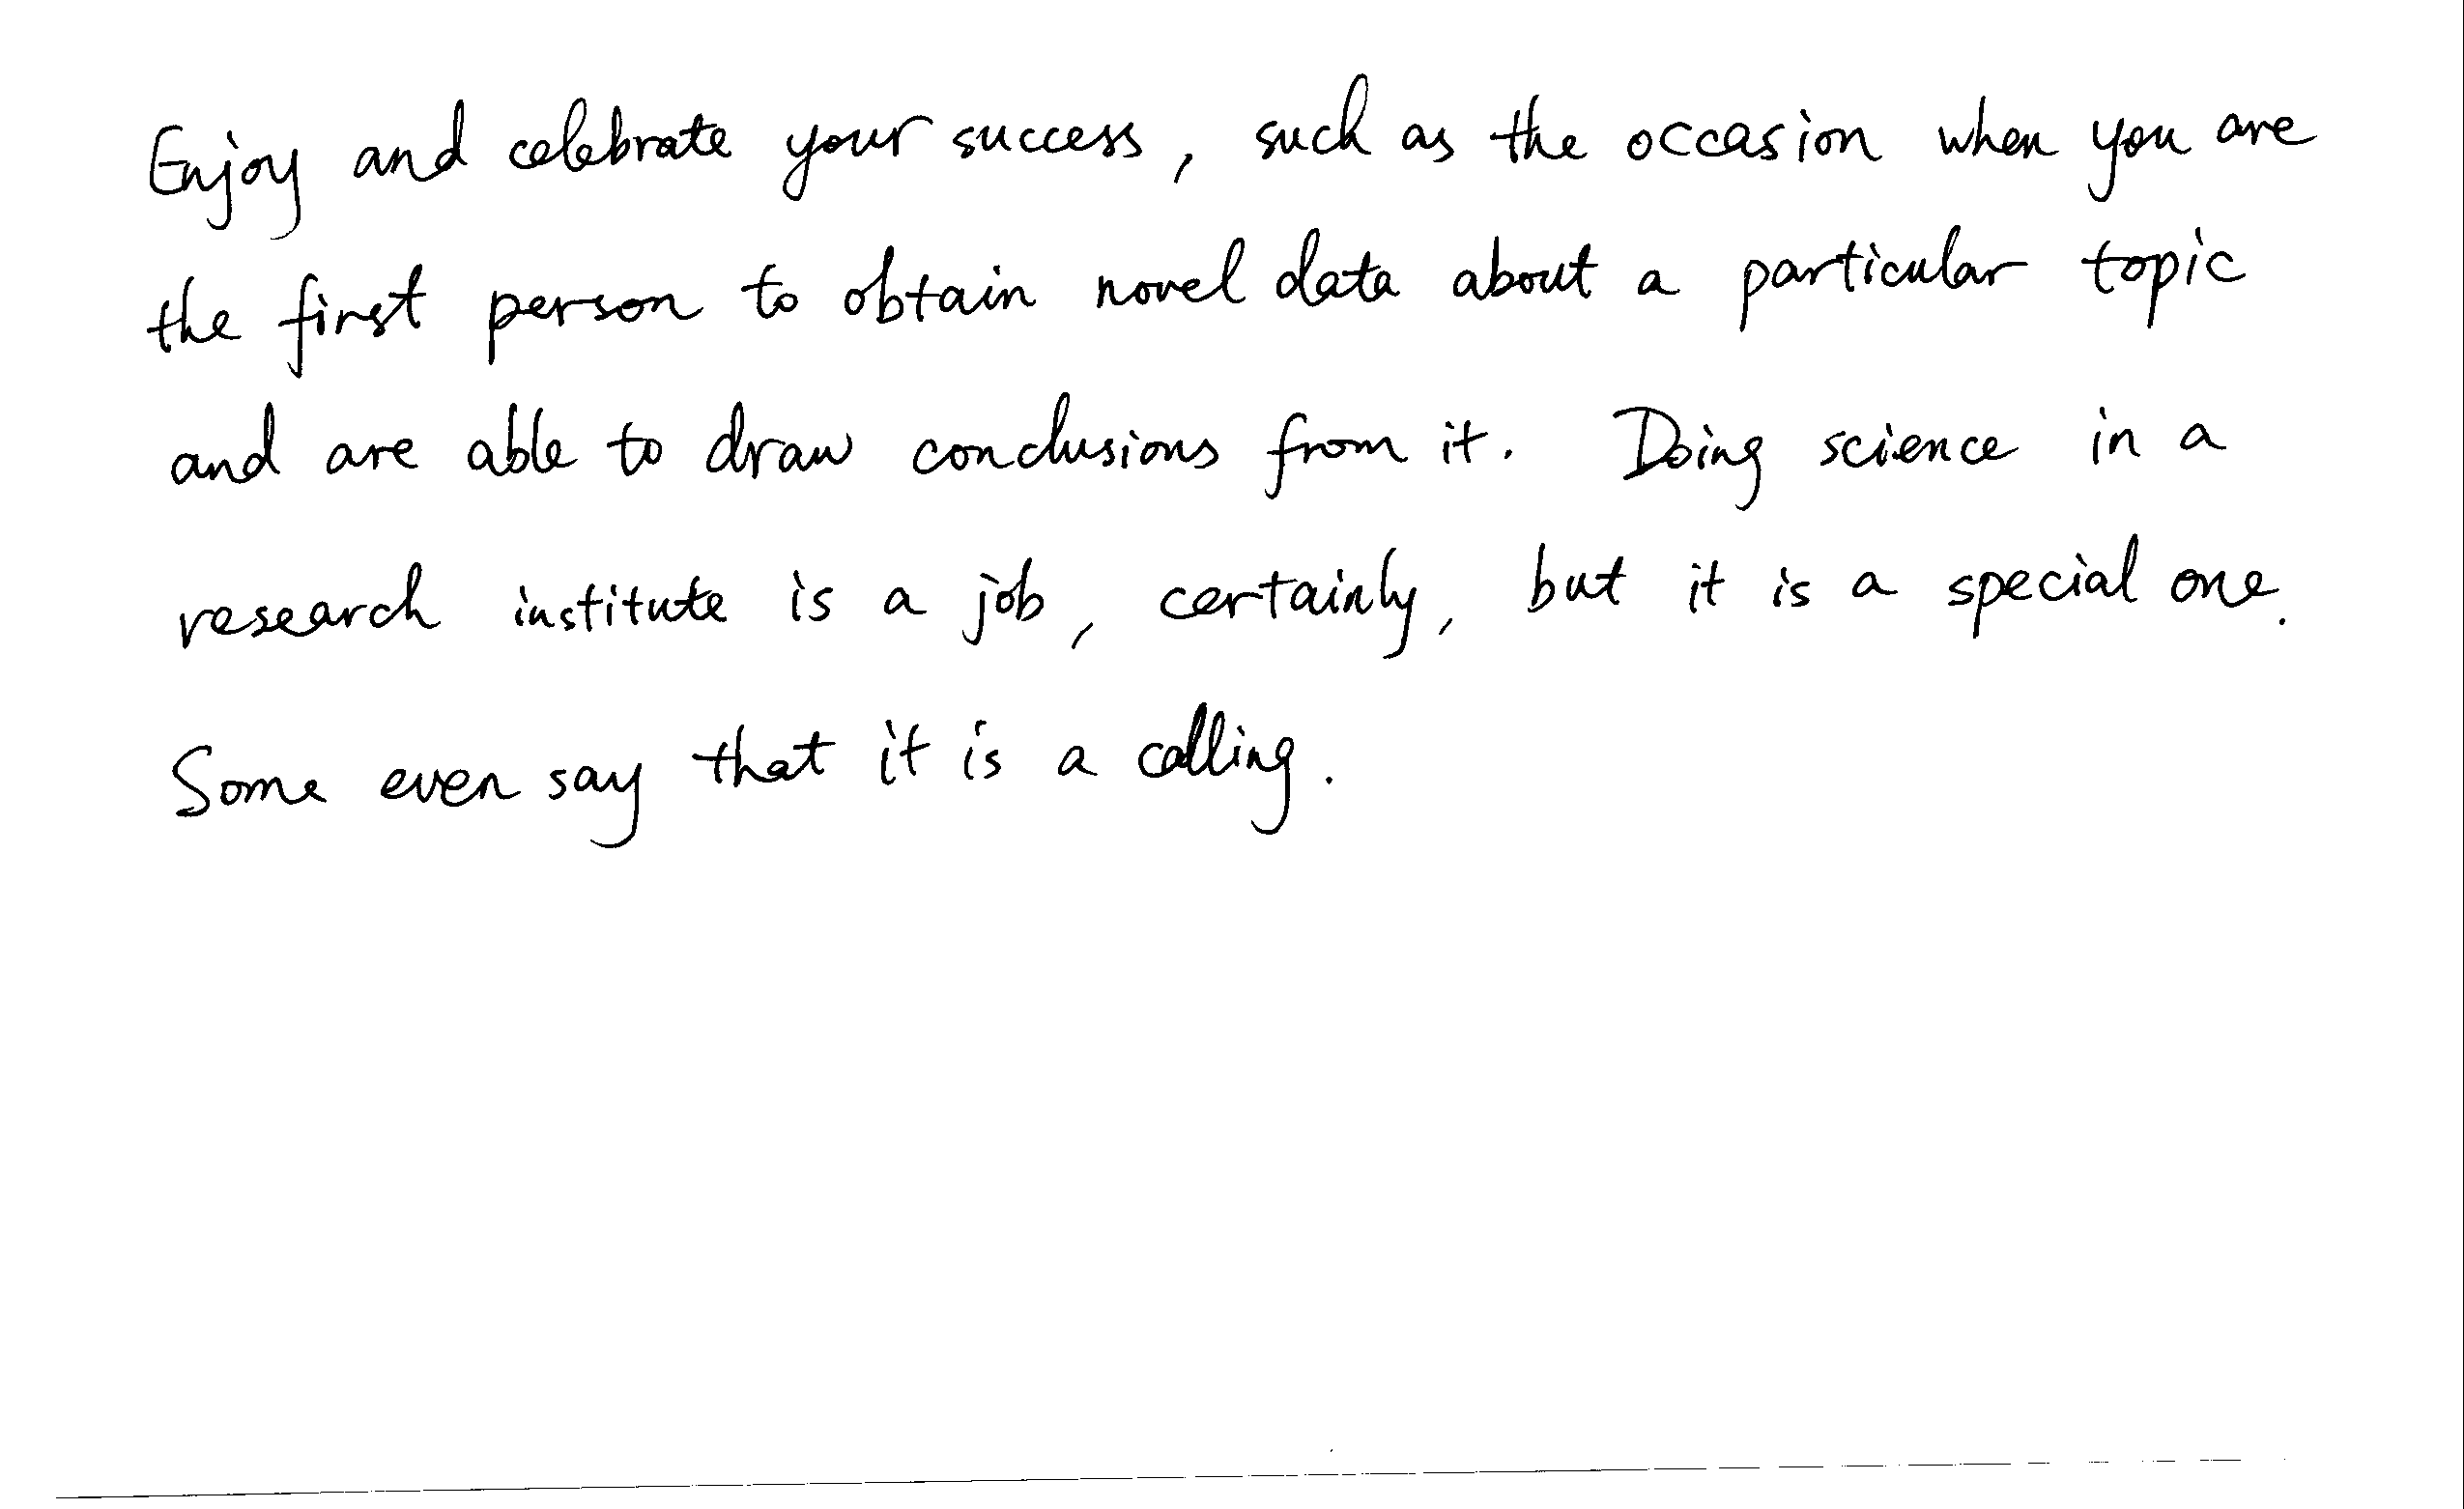 Enjoy and celebrate your success, such as the occasion when you are
the first person to obtain novel data about a particular topic
and are able to draw conclusions from it. Doing science in a
research institute is a job, certainly, but it is a special one.
Some even say that it is a calling.